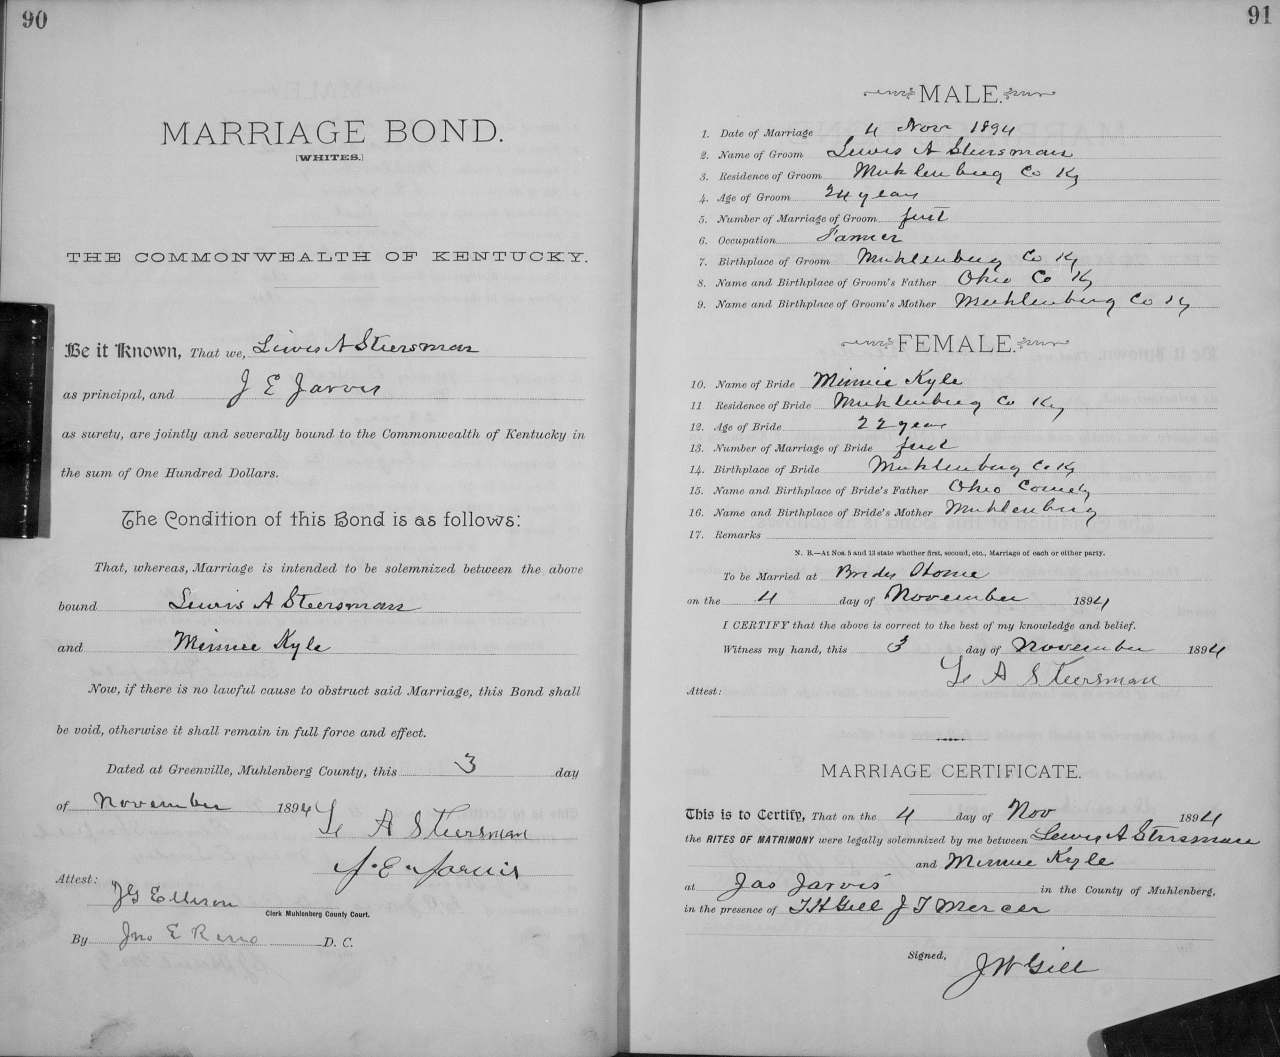 90
MARRIAGE BOND.
[WHITES.]
THE COMMONWEALTH OF KENTUCKY.
Be it Known, That we, Lewis A Steersman
as principal, and J E Jarvis
as surety, are jointly and severally bound to the Commonwealth of Kentucky in
the sum of One Hundred Dollars.
The Condition of this Bond is as follows:
That, whereas, Marriage is intended to be solemnized between the above
bound Lewis A Steersman
and Minnie Kyle
Now, if there is no lawful cause to obstruct said Marriage, this Bond shall
be void, otherwise it shall remain in full force and effect.
Dated at Greenville, Muhlenberg County, this 3 day
of November 1894
L A Steersman
J. E. Jarvis
Attest:
Clerk Muhlenberg County Court.
By Jno E Reno D. C.
91
MALE.
1. Date of Marriage 4 Nov 1894
2. Name of Groom Lewis A Steersman
3. Residence of Groom Muhlenberg Co Ky
4. Age of Groom 24 years
5. Number of Marriage of Groom first
6. Occupation Farmer
7. Birthplace of Groom Muhlenberg Co Ky
8. Name and Birthplace of Groom's Father Ohio Co Ky
9. Name and Birthplace of Groom's Mother Muhlenberg Co Ky
FEMALE.
10. Name of Bride Minnie Kyle
11 Residence of Bride Muhlenberg Co Ky
12. Age of Bride 22 years
13. Number of Marriage of Bride first
14. Birthplace of Bride Muhlenberg Co Ky
15. Name and Birthplace of Bride's Father Ohio County
16. Name and Birthplace of Bride's Mother Muhlenberg
17. Remarks
N. B.—At Nos. 5 and 13 state whether first, second, etc., Marriage of each or either party.
To be Married at Brides Home
on the 4 day of November 1894
I CERTIFY that the above is correct to the best of my knowledge and belief.
Witness my hand, this 3 day of November 1894
L A Steersman
Attest:
MARRIAGE CERTIFICATE.
This is to Certify, That on the 4 day of Nov 1894
the RITES OF MATRIMONY were legally solemnized by me between Lewis A Steersman
and Minnie Kyle
at Jas Jarvis in the County of Muhlenberg,
in the presence of T H Gill J T Mercer
Signed,
J W Gill